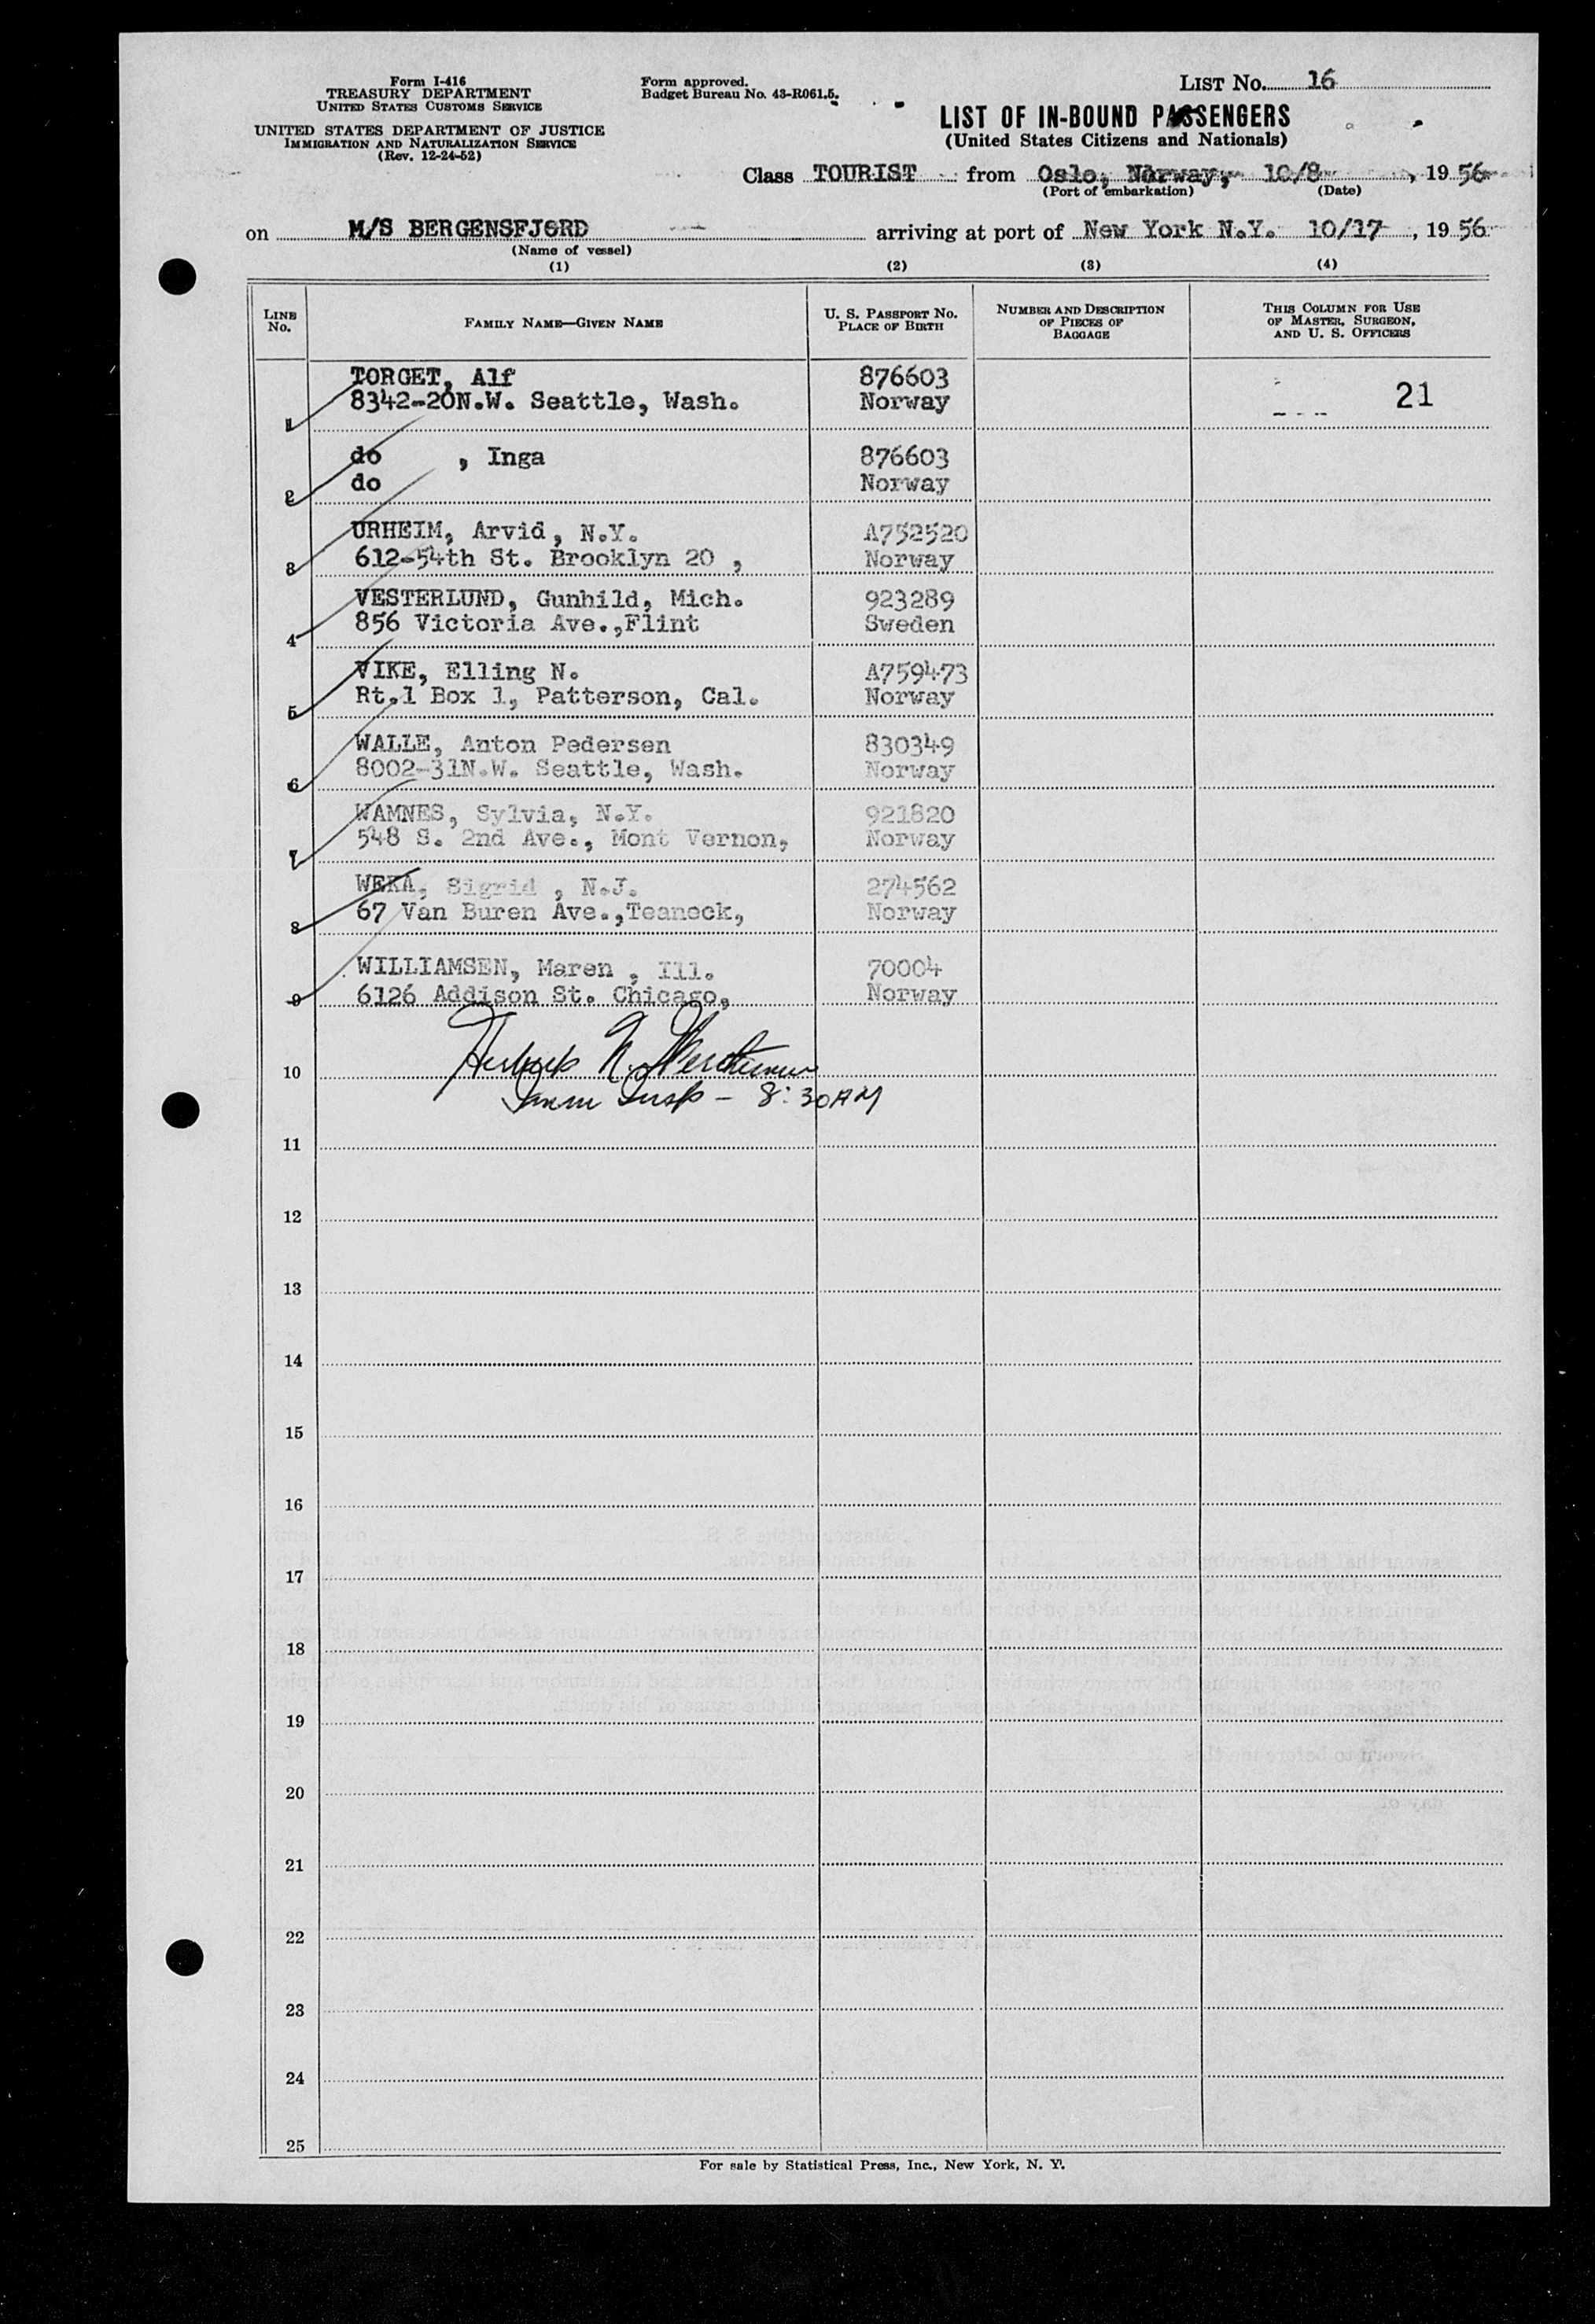 Form I-416
TREASURY DEPARTMENT
UNITED STATES CUSTOMS SERVICE
UNITED STATES DEPARTMENT OF JUSTICE
IMMIGRATION AND NATURALIZATION SERVICE
(Rev. 12-24-52)
Form approved.
Budget Bureau No. 43-R061.5.
LIST No. 16
LIST OF IN-BOUND PASSENGERS
(United States Citizens and Nationals)
Class TOURIST from Oslo, Norway, 10/8, 19 56
(Port of embarkation) (Date)
on M/S BERGENSFJORD arriving at port of New York N.Y. 10/17, 19 56
(Name of vessel)
(1) (2) (3) (4)
LINE No. FAMILY NAME—GIVEN NAME U. S. PASSPORT No. PLACE OF BIRTH NUMBER AND DESCRIPTION OF PIECES OF BAGGAGE THIS COLUMN FOR USE OF MASTER, SURGEON, AND U. S. OFFICERS
TORGET, Alf 876603
1 8342-20N.W. Seattle, Wash. Norway 21
do , Inga 876603
2 do Norway
URHEIM, Arvid, N.Y. A752520
3 612-54th St. Brooklyn 20 , Norway
VESTERLUND, Gunhild, Mich. 923289
4 856 Victoria Ave.,Flint Sweden
VIKE, Elling N. A759473
5 Rt.1 Box 1, Patterson, Cal. Norway
WALLE, Anton Pedersen 830349
6 8002-31N.W. Seattle, Wash. Norway
WAMNES, Sylvia, N.Y. 921820
7 548 S. 2nd Ave., Mont Vernon, Norway
WEKA, Sigrid , N.J. 274562
8 67 Van Buren Ave.,Teaneck, Norway
WILLIAMSEN, Maren , Ill. 70004
9 6126 Addison St. Chicago, Norway
10
Imm Insp – 8:30 AM
11
12
13
14
15
16
17
18
19
20
21
22
23
24
25
For sale by Statistical Press, Inc., New York, N. Y.